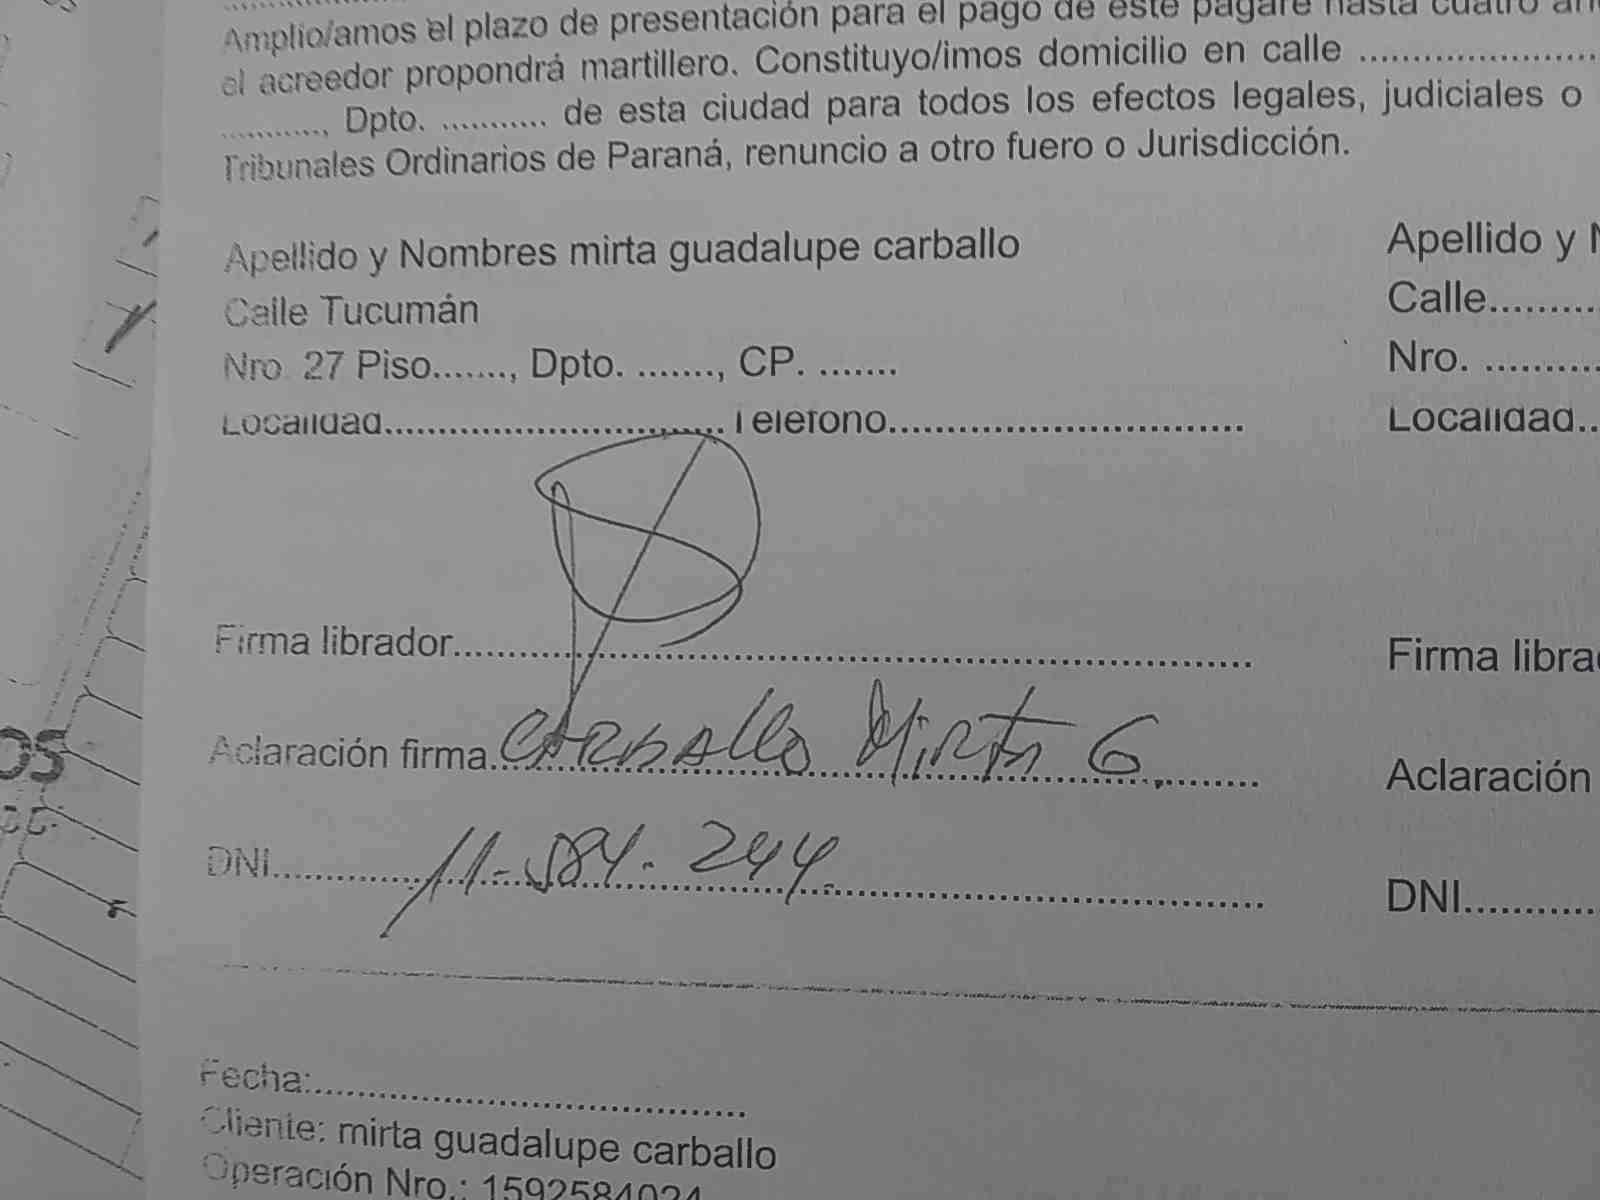 Amplio/amos el plazo de presentación para el pago de este pagaré hasta cuatro
el acreedor propondrá martillero. Constituyo/imos domicilio en calle ......................
............, Dpto. ........... de esta ciudad para todos los efectos legales, judiciales o
Tribunales Ordinarios de Paraná, renuncio a otro fuero o Jurisdicción.
Apellido y Nombres mirta guadalupe carballo
Calle Tucumán
Nro. 27 Piso......., Dpto. ......., CP. .......
Localidad................................ Teléfono..................................
Firma librador............................................................................
Aclaración firma. CARBAllo Mirta G.
DNI. 11-584.244.
Fecha:.........................................
Cliente: mirta guadalupe carballo
Operación Nro.: 1592584024
Apellido y
Calle..........
Nro. ..........
Localidad..
Firma libra
Aclaración
DNI............